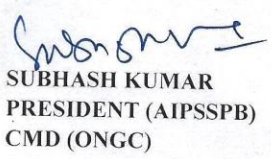 SUBHASH KUMAR
PRESIDENT (AIPSSPB)
CMD (ONGC)